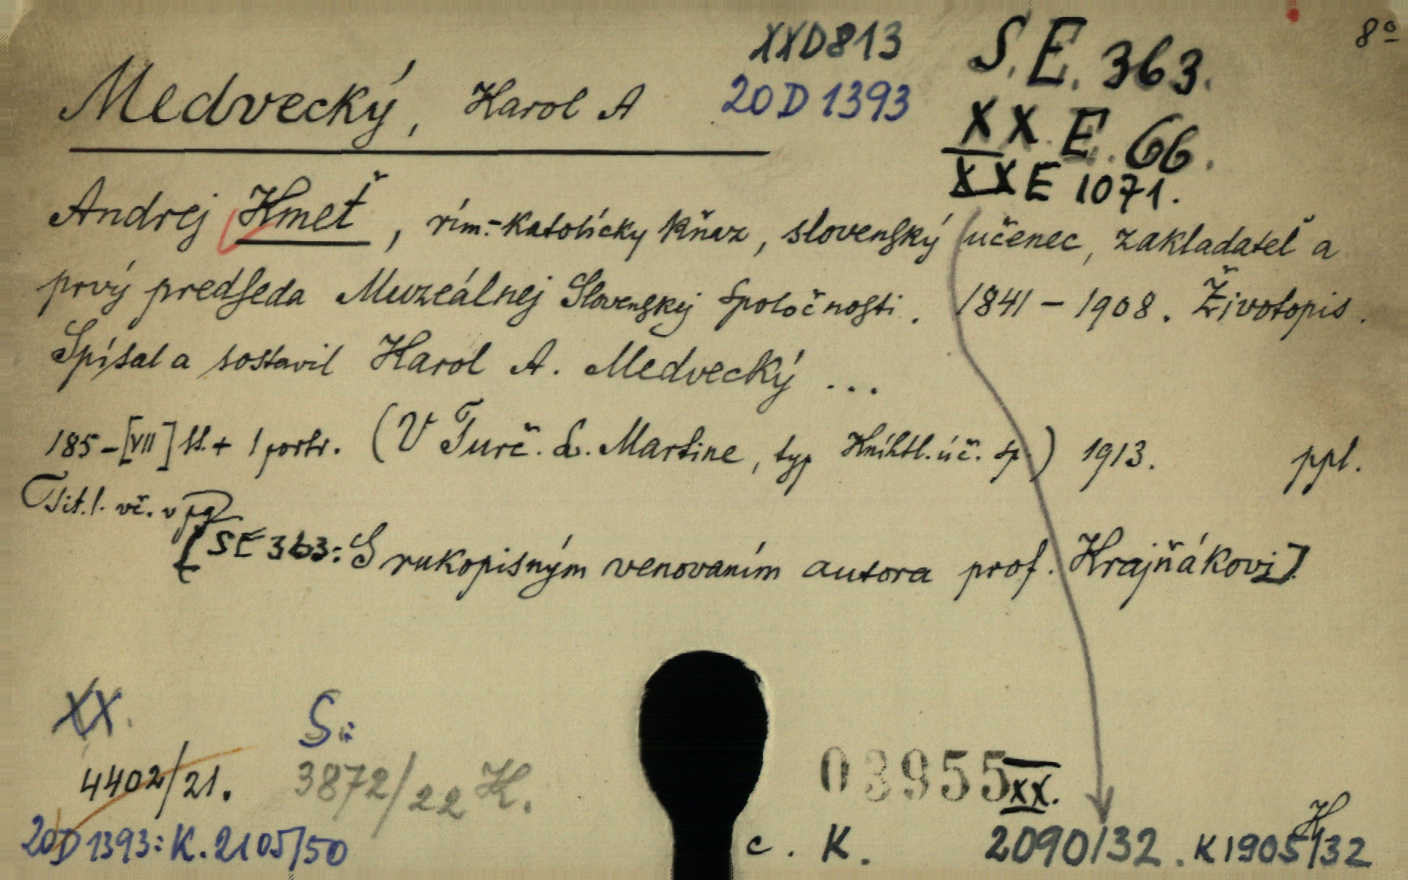 XXD813
S.E. 363.
8º
Medvecký, Karol A
20D 1393
XX.E.66.
XXE 1071.
Andrej Kmeť, rím.-katolícky kňaz, slovenský učenec, zakladateľ a
prvý predseda Muzeálnej Slovenskej Spoločnosti. 1841-1908. Životopis.
Spísal a sostavil Karol A. Medvecký ...
185-[VII] ss.+ 1 portr. (V Turč. S. Martine, typ Kníhtl. úč. sp.) 1913. ppl.
Tit.l. vč. v pg
[SE 363: S rukopisným venovaním autora prof. Krajňákovi].
XX. S:
4402/21. 3872/22 K. 03955 XX.
20D 1393: K. 2105/50 c. K. 2090/32. K 1905/32
K